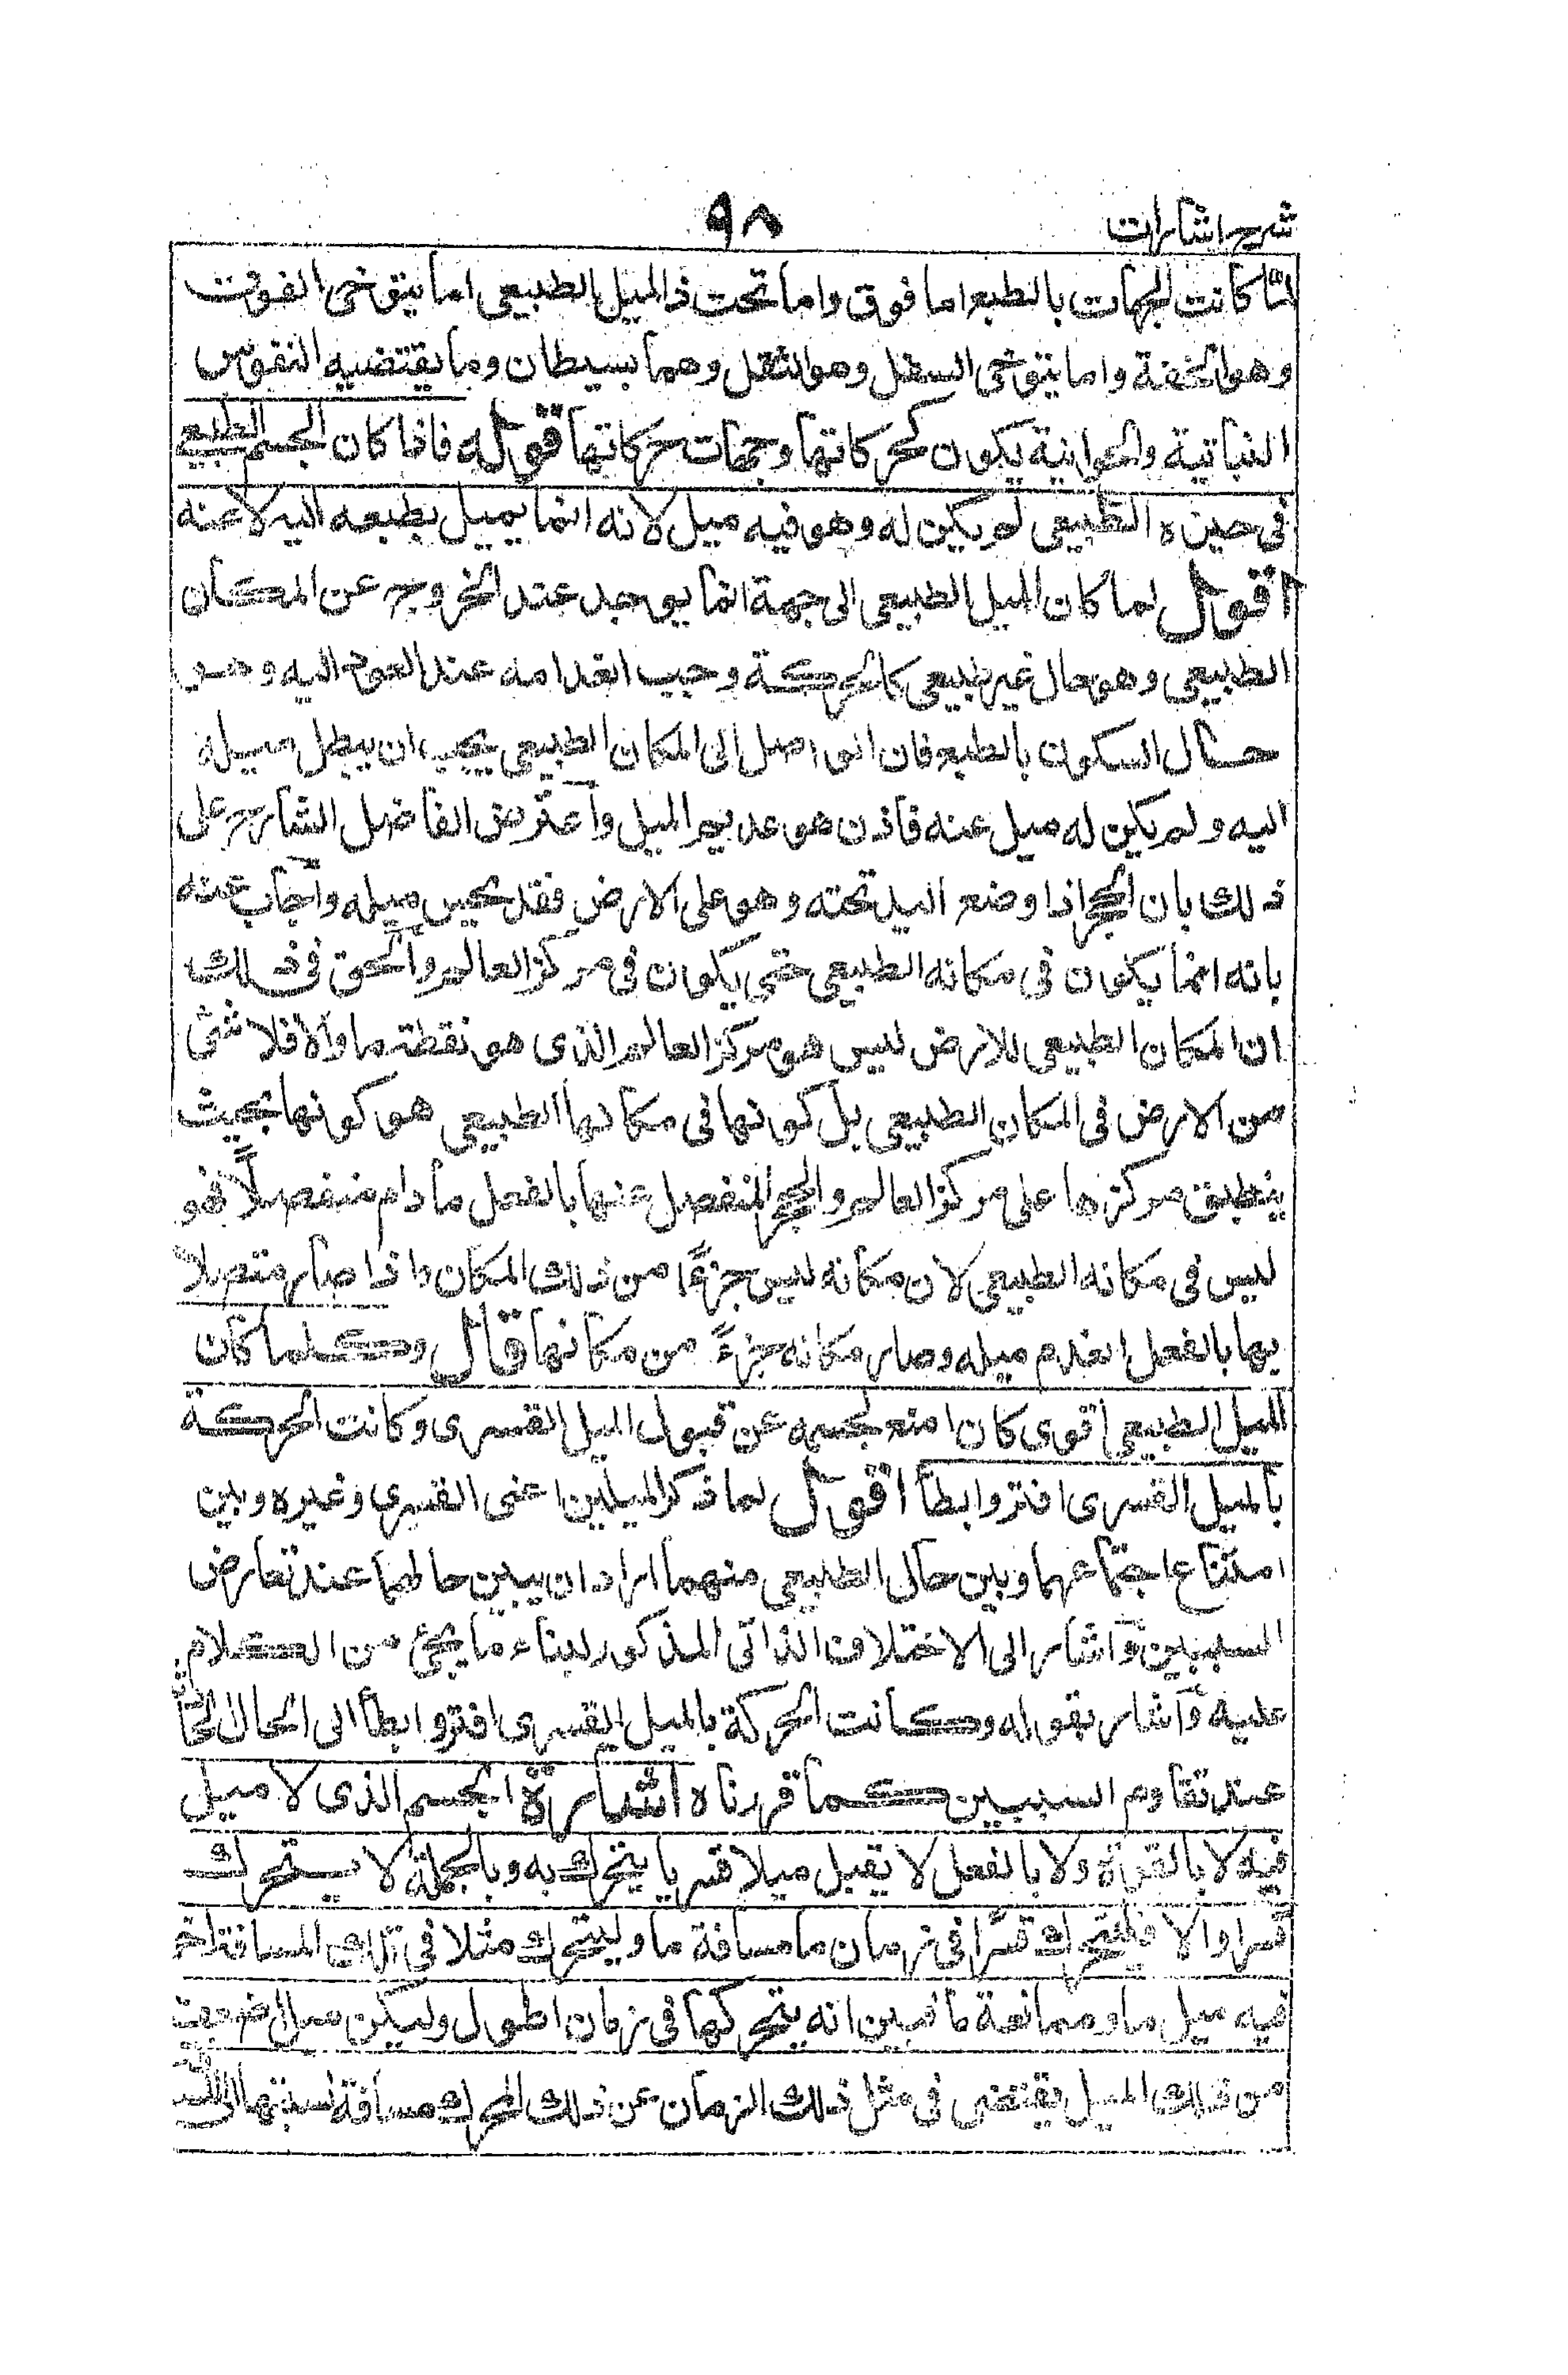 شرح اشارات
٩٨
لما كانت الجهات بالطبع اما فوق واما تحت فالميل الطبيعى اما يتوخى الفوق
وهو الخفة واما يتوخى السفل وهو الثقل وهما بسيطان وما يقتضيه النفوس
النباتية والحيوانية يكون كحركاتها وجهات حركاتها قوله فاذا كان الجسم الطبيعى
فى حيزه الطبيعى لم يكن له وهو فيه ميل لانه انما يميل بطبعه اليه لا عنه
اقول لما كان الميل الطبيعى الى جهة انما يوجد عند الخروج عن المكان
الطبيعى وهو حال غير طبيعى كالحركة وجب انعدامه عند العود اليه وهو
حال السكون بالطبع فان الواصل الى المكان الطبيعى يجب ان يبطل ميله
اليه ولم يكن له ميل عنه فاذن هو عديم الميل واعترض الفاضل الشارح على
ذلك بان الحجر اذا وضع اليد تحته وهو على الارض فقد يحس ميله واجاب عنه
بانه انما يكون فى مكانه الطبيعى حتى يكون فى مركز العالم والحق فى ذلك
ان المكان الطبيعى للارض ليس هو مركز العالم الذى هو نقطة ما والا فلا شئ
من الارض فى المكان الطبيعى بل كونها فى مكانها الطبيعى هو كونها بحيث
ينطبق مركزها على مركز العالم والحجر المنفصل عنها بالفعل ما دام منفصلاً فهو
ليس فى مكانه الطبيعى لان مكانه ليس جزءًا من ذلك المكان واذا صار متصلا
بها بالفعل انعدم ميله وصار مكانه جزءً من مكانها قال وكلما كان
الميل الطبيعى اقوى كان امنع لجسمه عن قبول الميل القسرى وكانت الحركة
بالميل القسرى افتر وابطأ اقول لما ذكر الميلين اعنى القسرى وغيره وبين
امتناع اجتماعهما وبين حال الطبيعى منهما اراد ان يبين حالهما عند تعارض
السببين واشار الى الاختلاف الذاتى المذكور لبناء ما يجئ من الكلام
عليه واشار بقوله وكانت الحركة بالميل القسرى افتر وابطأ الى الحال
عند تقاوم السببين كما قررناه اشارة الجسم الذى لا ميل
فيه لا بالقوة ولا بالفعل لا يقبل ميلا قسريا يتحرك به وبالجملة لا يتحرك
قسرا والا فليتحرك قسرًا فى زمان ما مسافة ما وليتحرك مثلا فى تلك المسافة اخر
فيه ميل ما وممانعة ما فبين انه يتحركها فى زمان اطول وليكن ميل اضعف
من ذلك الميل يقتضى فى مثل ذلك الزمان عن ذلك المحرك مسافة نسبتها الى